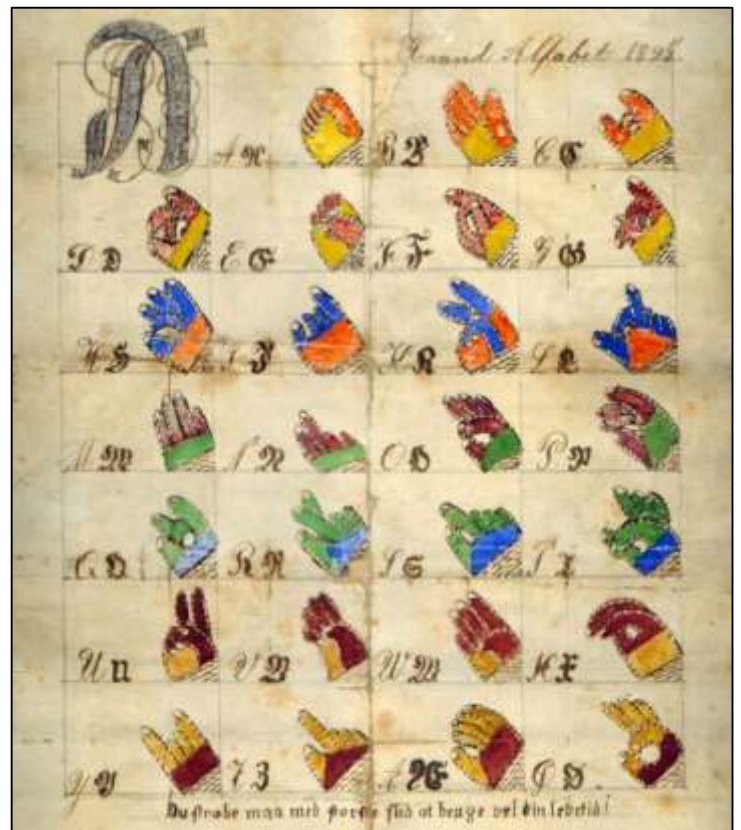 Haand Alfabet
A A B B C C
D D E E F F G G
H H I I K K L L
M M N N O O P P
Q Q R R S S T T
U U V V W W X X
Y Y Z Z Æ Æ Ø Ø
Du stræbe maa med flid at bruge vel din levetid!